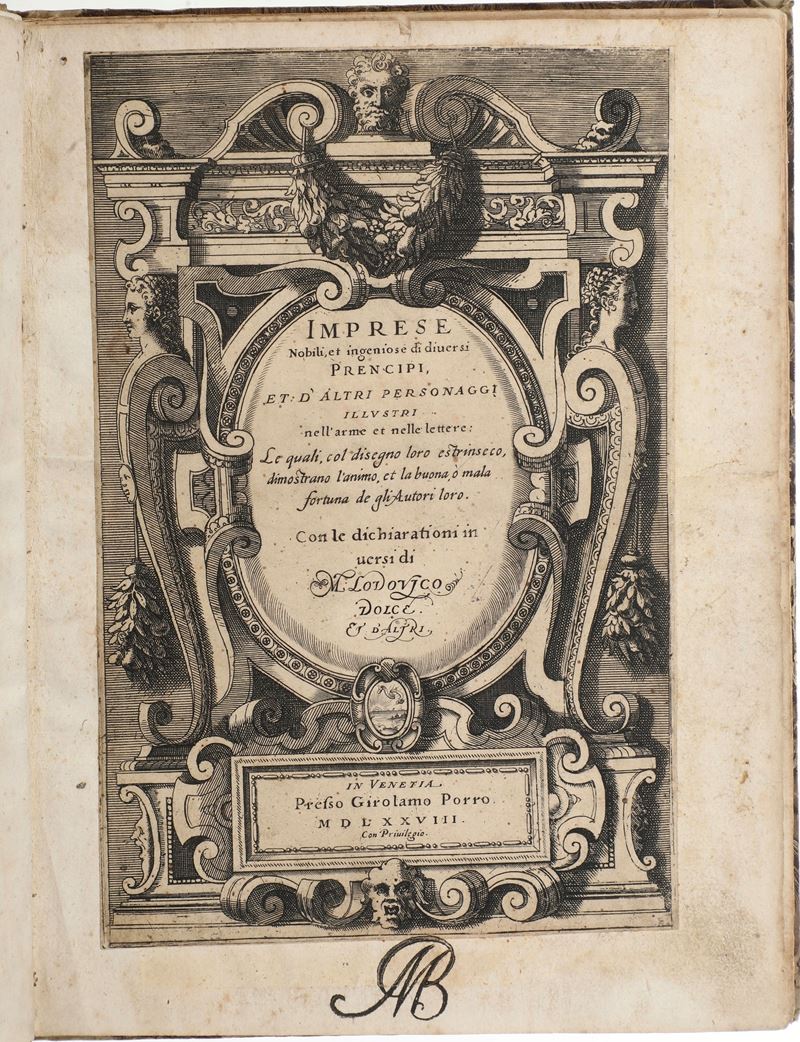 IMPRESE
Nobili, et ingeniose di diuersi
PRENCIPI,
ET D'ALTRI PERSONAGGI
ILLVSTRI
nell'arme et nelle lettere:
Le quali, col disegno loro estrinseco,
dimostrano l'animo, et la buona, ò mala
fortuna de gli Autori loro.
Con le dichiarationi in
uersi di
M. LODOVICO
DOLCE.
ET D'ALTRI.
IN VENETIA.
Presso Girolamo Porro.
MDLXXVIII.
Con Priuilegio.
AB